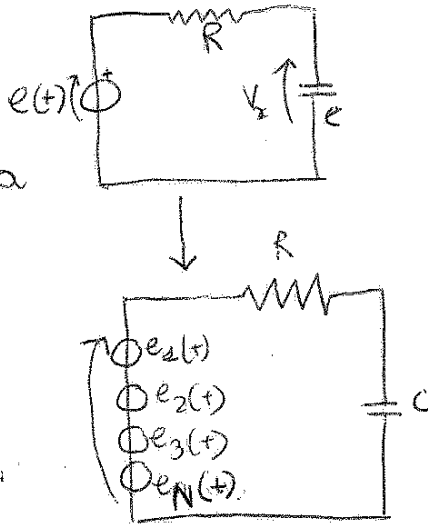 R
e(t)
+
V₂
e
a
R
e₁(t)
e₂(t)
e₃(t)
e_N(t)
C